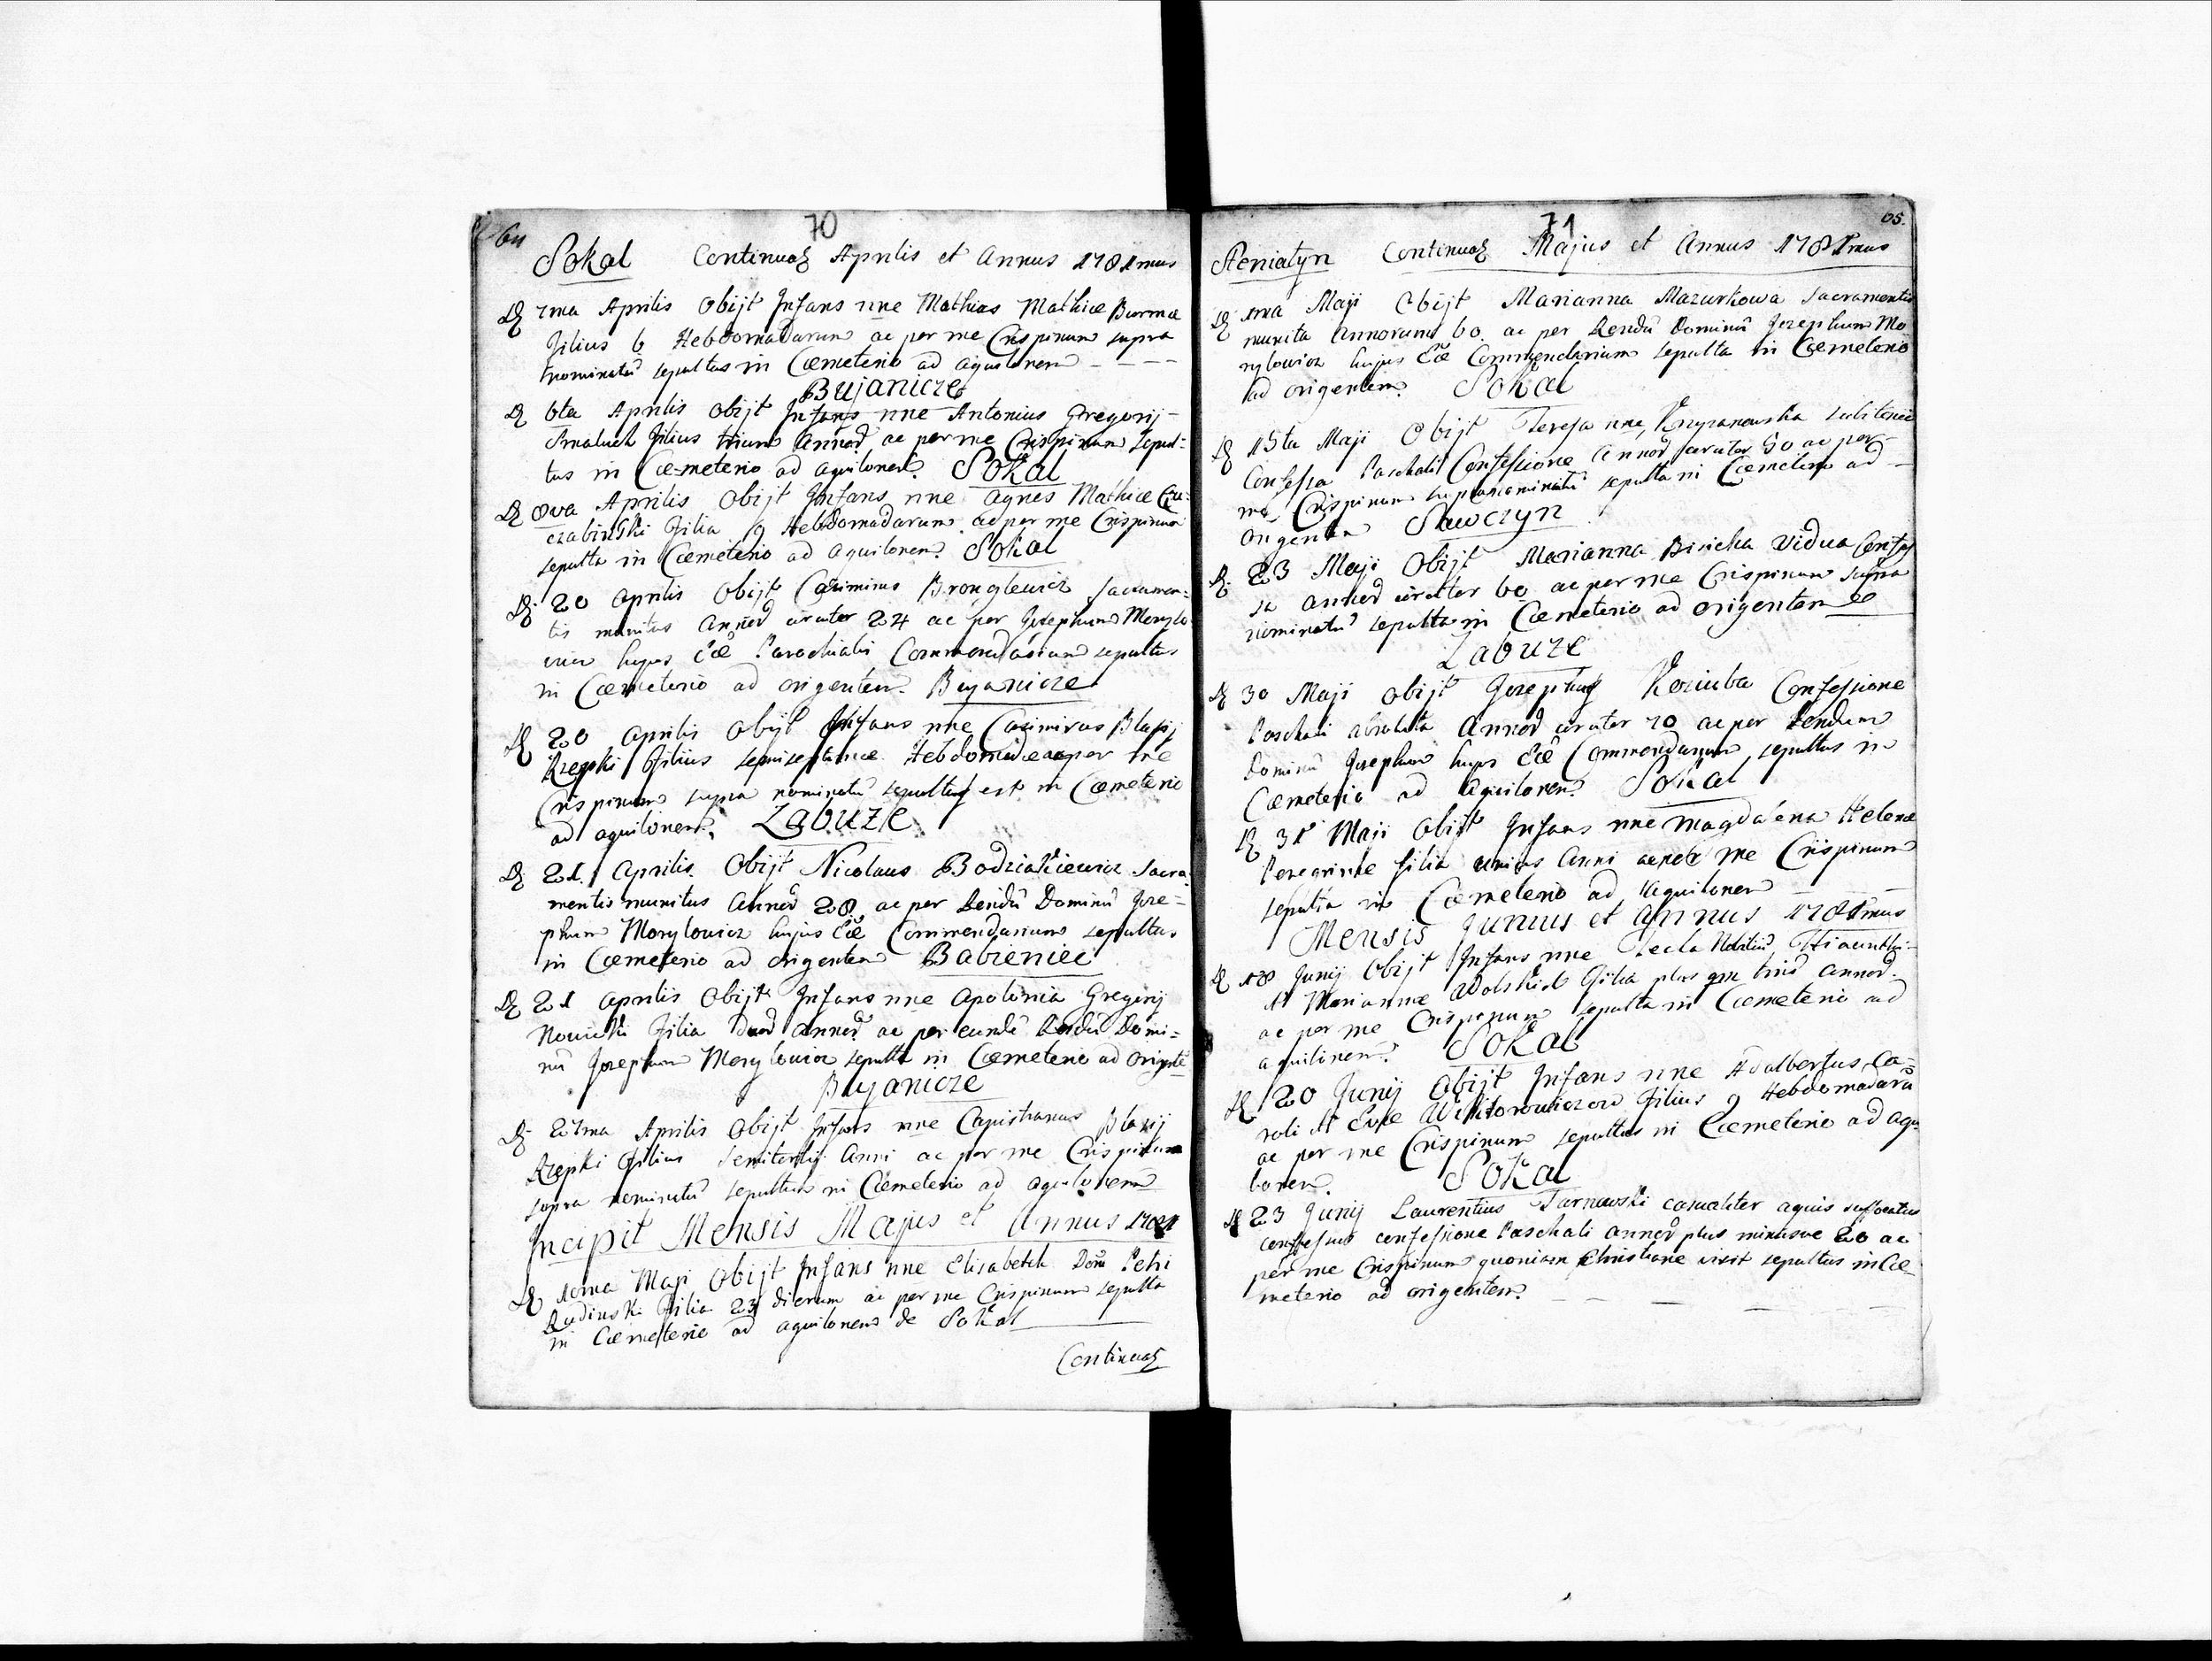 70
Sokal Continuat Aprilis et Annus 1781mus
1ma Aprilis Obijt Infans nne Mathias Mathiæ Burma
Filius 6 Hebdomadarum ac per me Crispinum supra
nominatũ sepultus in Cœmeterio ad aquilonem
Bujanicze
6ta Aprilis Obijt Infans nne Antonius Gregorij
Smaluch Filius trium Annor ac per me Crispinum sepul-
tus in Cœmeterio ad aquilonem. Sokal
8va Aprilis Obijt Infans nne Agnes Mathiæ
Filia 9 Hebdomadarum ac per me Crispinum
sepulta in Cœmeterio ad aquilonem. Sokal
20 Aprilis Obijt Casimirus Bronglewicz sacramen-
tis munitus Annor circiter 24 ac per Josephum Morylo
wicz hujus Eccæ Parochialis Commendarium sepultus
in Cœmeterio ad origentem. Bujanicze
20 Aprilis Obijt Infans nne Casimirus Blasij
Rzepki Filius Hebdomadæ ac per me
Crispinum supra nominatũ sepultus est in Cœmeterio
ad aquilonem. Zabuze
21 Aprilis Obijt Nicolaus Bodziakiewicz Sacra-
mentis munitus Annor 28 ac per Rendũ Dominũ Joze-
phum Morylowicz hujus Eccæ Commendarium sepultus
in Cœmeterio ad origentem Babieniec
21 Aprilis Obijt Infans nne Apolonia Gregorij
Nowicki Filia duor Annor ac per eundẽ Rendũ Domi-
nũ Jozephum Morylowicz sepulta in Cœmeterio ad origentẽ
Bujanicze
27ma Aprilis Obijt Infans nne Capistranus Blasij
Rzepki Filius Anni ac per me Crispinum
supra nominatũ sepultus in Cœmeterio ad aquilonem
Incipit Mensis Majus et Annus 1781
Maji Obijt Infans nne Elisabeth Doni Petri
Rudinski Filia 23 dierum ac per me Crispinum sepulta
in Cœmeterio ad aquilonem de Sokal
Continuat
71
65.
Steniatyn Continuat Majus et Annus 1781mus
1ma Maji Obijt Marianna Mazurkowa sacramentis
munita Annorum 60 ac per Rendũ Dominũ Jozephum Mo
rylowicz hujus Eccæ Commendarium sepulta in Cœmeterio
ad origentem. Sokal
15ta Maji Obijt Teresa nne,
Confessa Paschali Confessione Annor circiter 50 ac per
me Crispinum supranominatũ sepulta in Cœmeterio ad
origentem Sawczyn
23 Maji Obijt Marianna Vidua Confes
sa Annor circiter 60 ac per me Crispinum supra
nominatũ sepulta in Cœmeterio ad origentem
Zabuze
30 Maji Obijt Jozephus Koziuba Confessione
Paschali absoluta Annor circiter 70 ac per Rendum
Dominũ Josephum hujus Eccæ Commendarium sepultus in
Cœmeterio ad Aquilonem. Sokal
31 Maji Obijt Infans nne Magdalena Helenæ
Filia unius Anni ac per me Crispinum
sepulta in Cœmeterio ad Aquilonem
Mensis Junius et Annus 1781mus
18 Junij Obijt Infans nne Tecla Nobiliũ
et Mariannæ Filia plus Annor
ac per me Crispinum sepulta in Cœmeterio ad
aquilonem. Sokal
20 Junij Obijt Infans nne Adalbertus Ca-
roli et Evæ Filius 9 Hebdomadarũ
ac per me Crispinum sepultus in Cœmeterio ad aqui
lonem. Sokal
23 Junij Laurentius Tarnawski casualiter aquis suffocatus
confessus confessione Paschali Annor plus minusve 20 ac
per me Crispinum quoniam Christiane vixit sepultus in Cœ
meterio ad origentem.